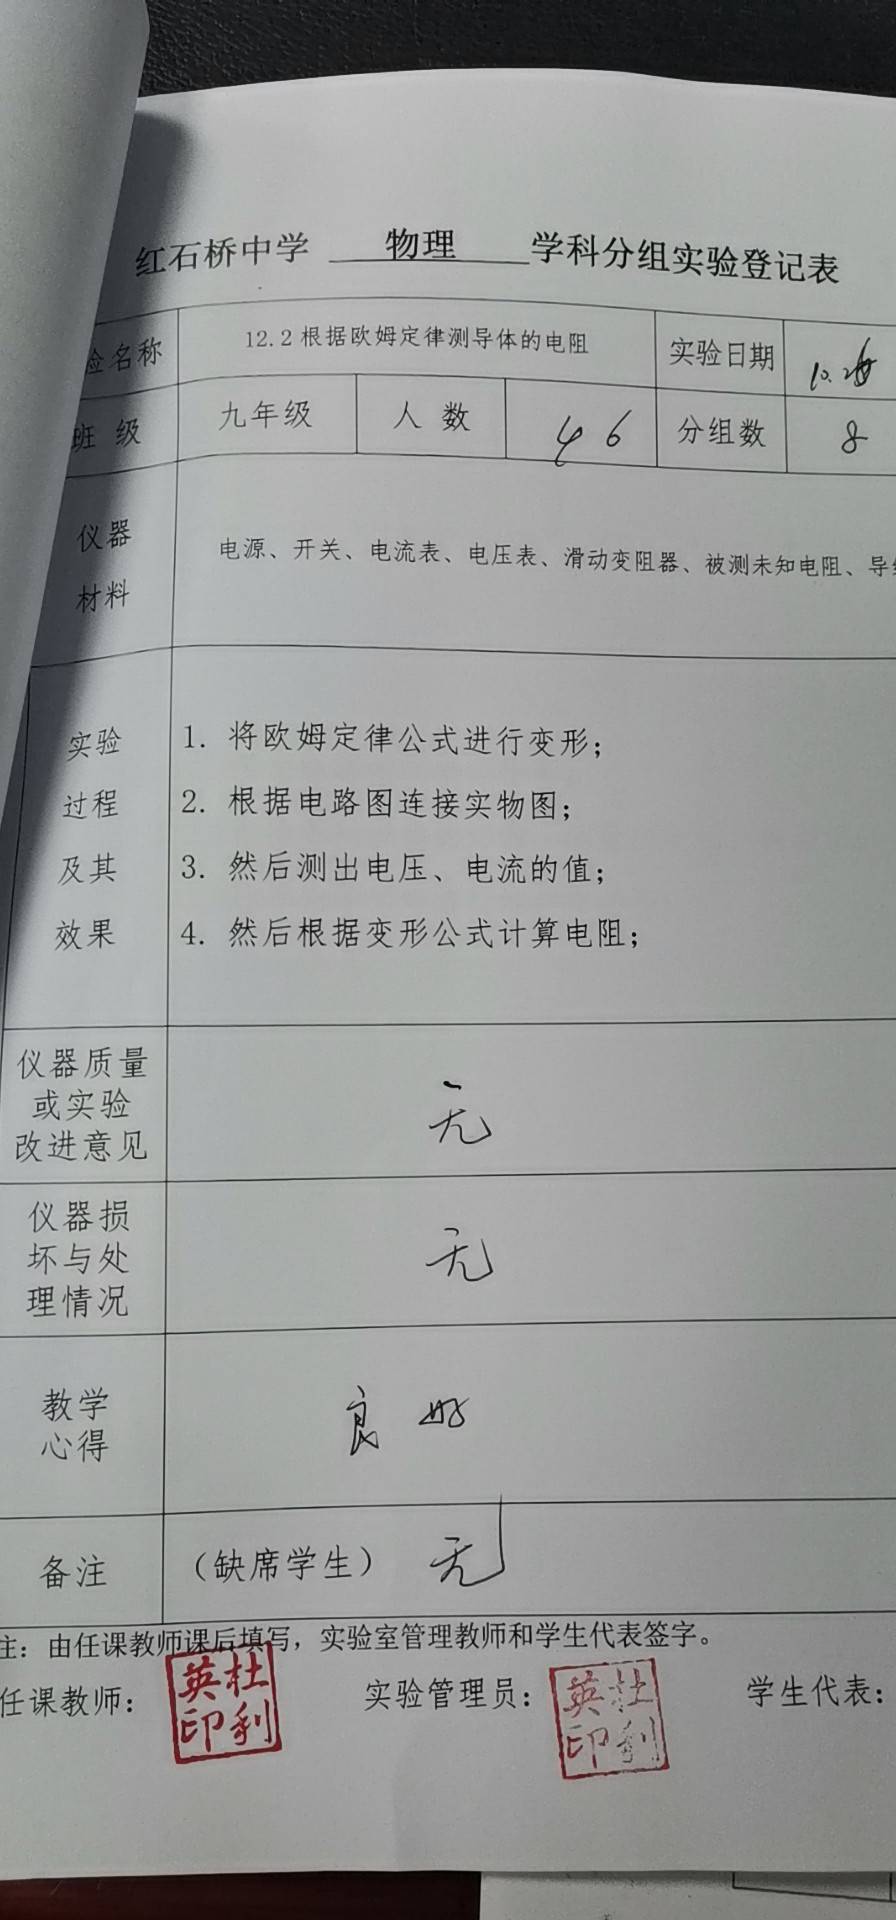 红石桥中学 物理 学科分组实验登记表
验名称 12.2根据欧姆定律测导体的电阻 实验日期
班级 九年级 人数 46 分组数 8
仪器
材料
电源、开关、电流表、电压表、滑动变阻器、被测未知电阻、导
实验
过程
及其
效果
1. 将欧姆定律公式进行变形；
2. 根据电路图连接实物图；
3. 然后测出电压、电流的值；
4. 然后根据变形公式计算电阻；
仪器质量
或实验
改进意见
无
仪器损
坏与处
理情况
无
教学
心得
良好
备注 （缺席学生） 无
注：由任课教师课后填写，实验室管理教师和学生代表签字。
任课教师： 杜利英印 实验管理员： 杜利英印 学生代表：